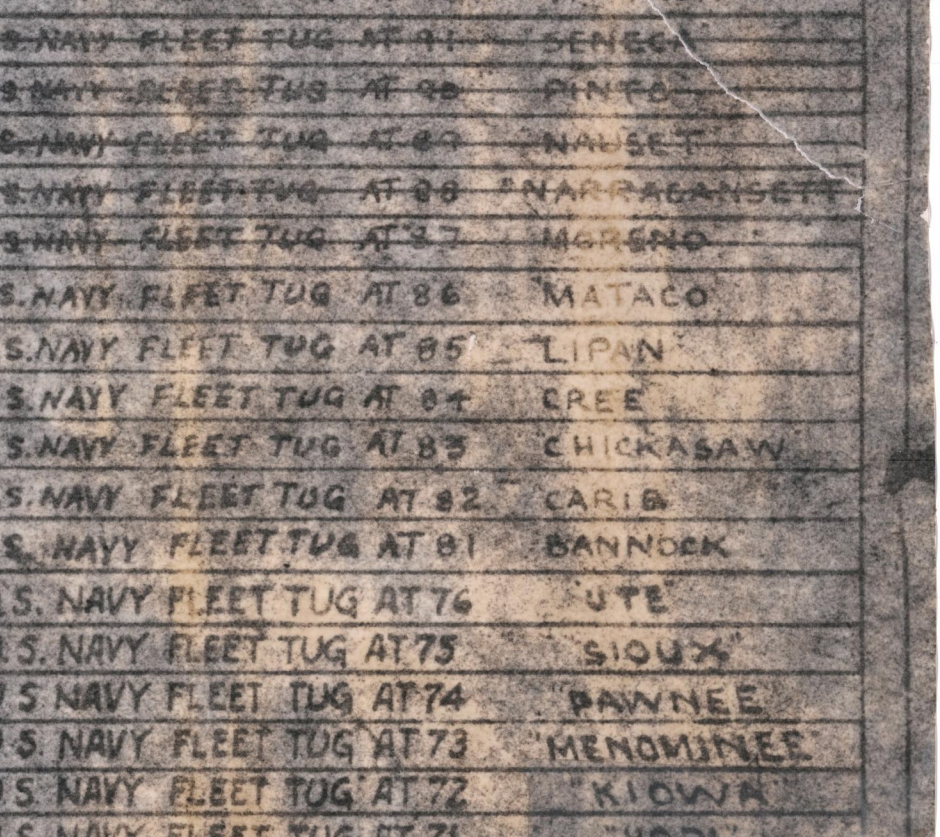 S. NAVY FLEET TUG AT 91 "SENECA"
S. NAVY FLEET TUG AT 90 "PINTO"
S. NAVY FLEET TUG AT 89 "NAUSET"
S. NAVY FLEET TUG AT 88 "NARRAGANSETT
S. NAVY FLEET TUG AT 87 "MORENO"
S. NAVY FLEET TUG AT 86 "MATACO"
S. NAVY FLEET TUG AT 85 "LIPAN"
S. NAVY FLEET TUG AT 84 CREE
S. NAVY FLEET TUG AT 83 "CHICKASAW"
S. NAVY FLEET TUG AT 82 CARIB
S. NAVY FLEET TUG AT 81 "BANNOCK"
S. NAVY FLEET TUG AT 76 "UTE"
S. NAVY FLEET TUG AT 75 "SIOUX"
S. NAVY FLEET TUG AT 74 "PAWNEE"
S. NAVY FLEET TUG AT 73 "MENOMINEE"
S. NAVY FLEET TUG AT 72 "KIOWA"
S. NAVY FLEET TUG AT 71